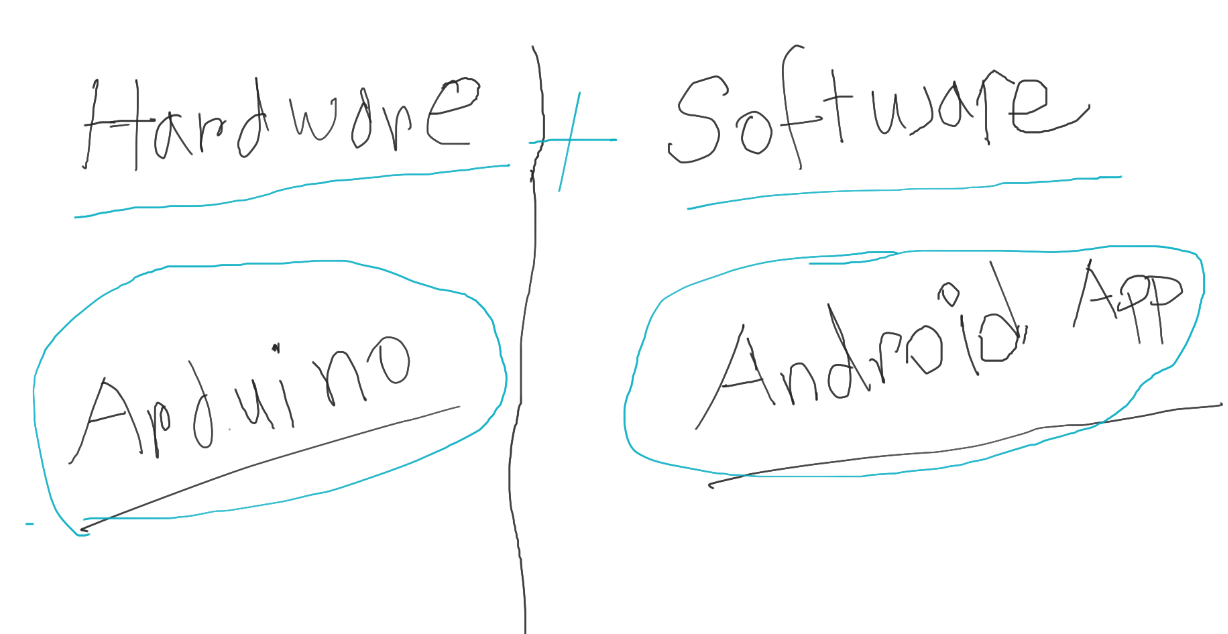 Hardware + Software
Arduino
Android App